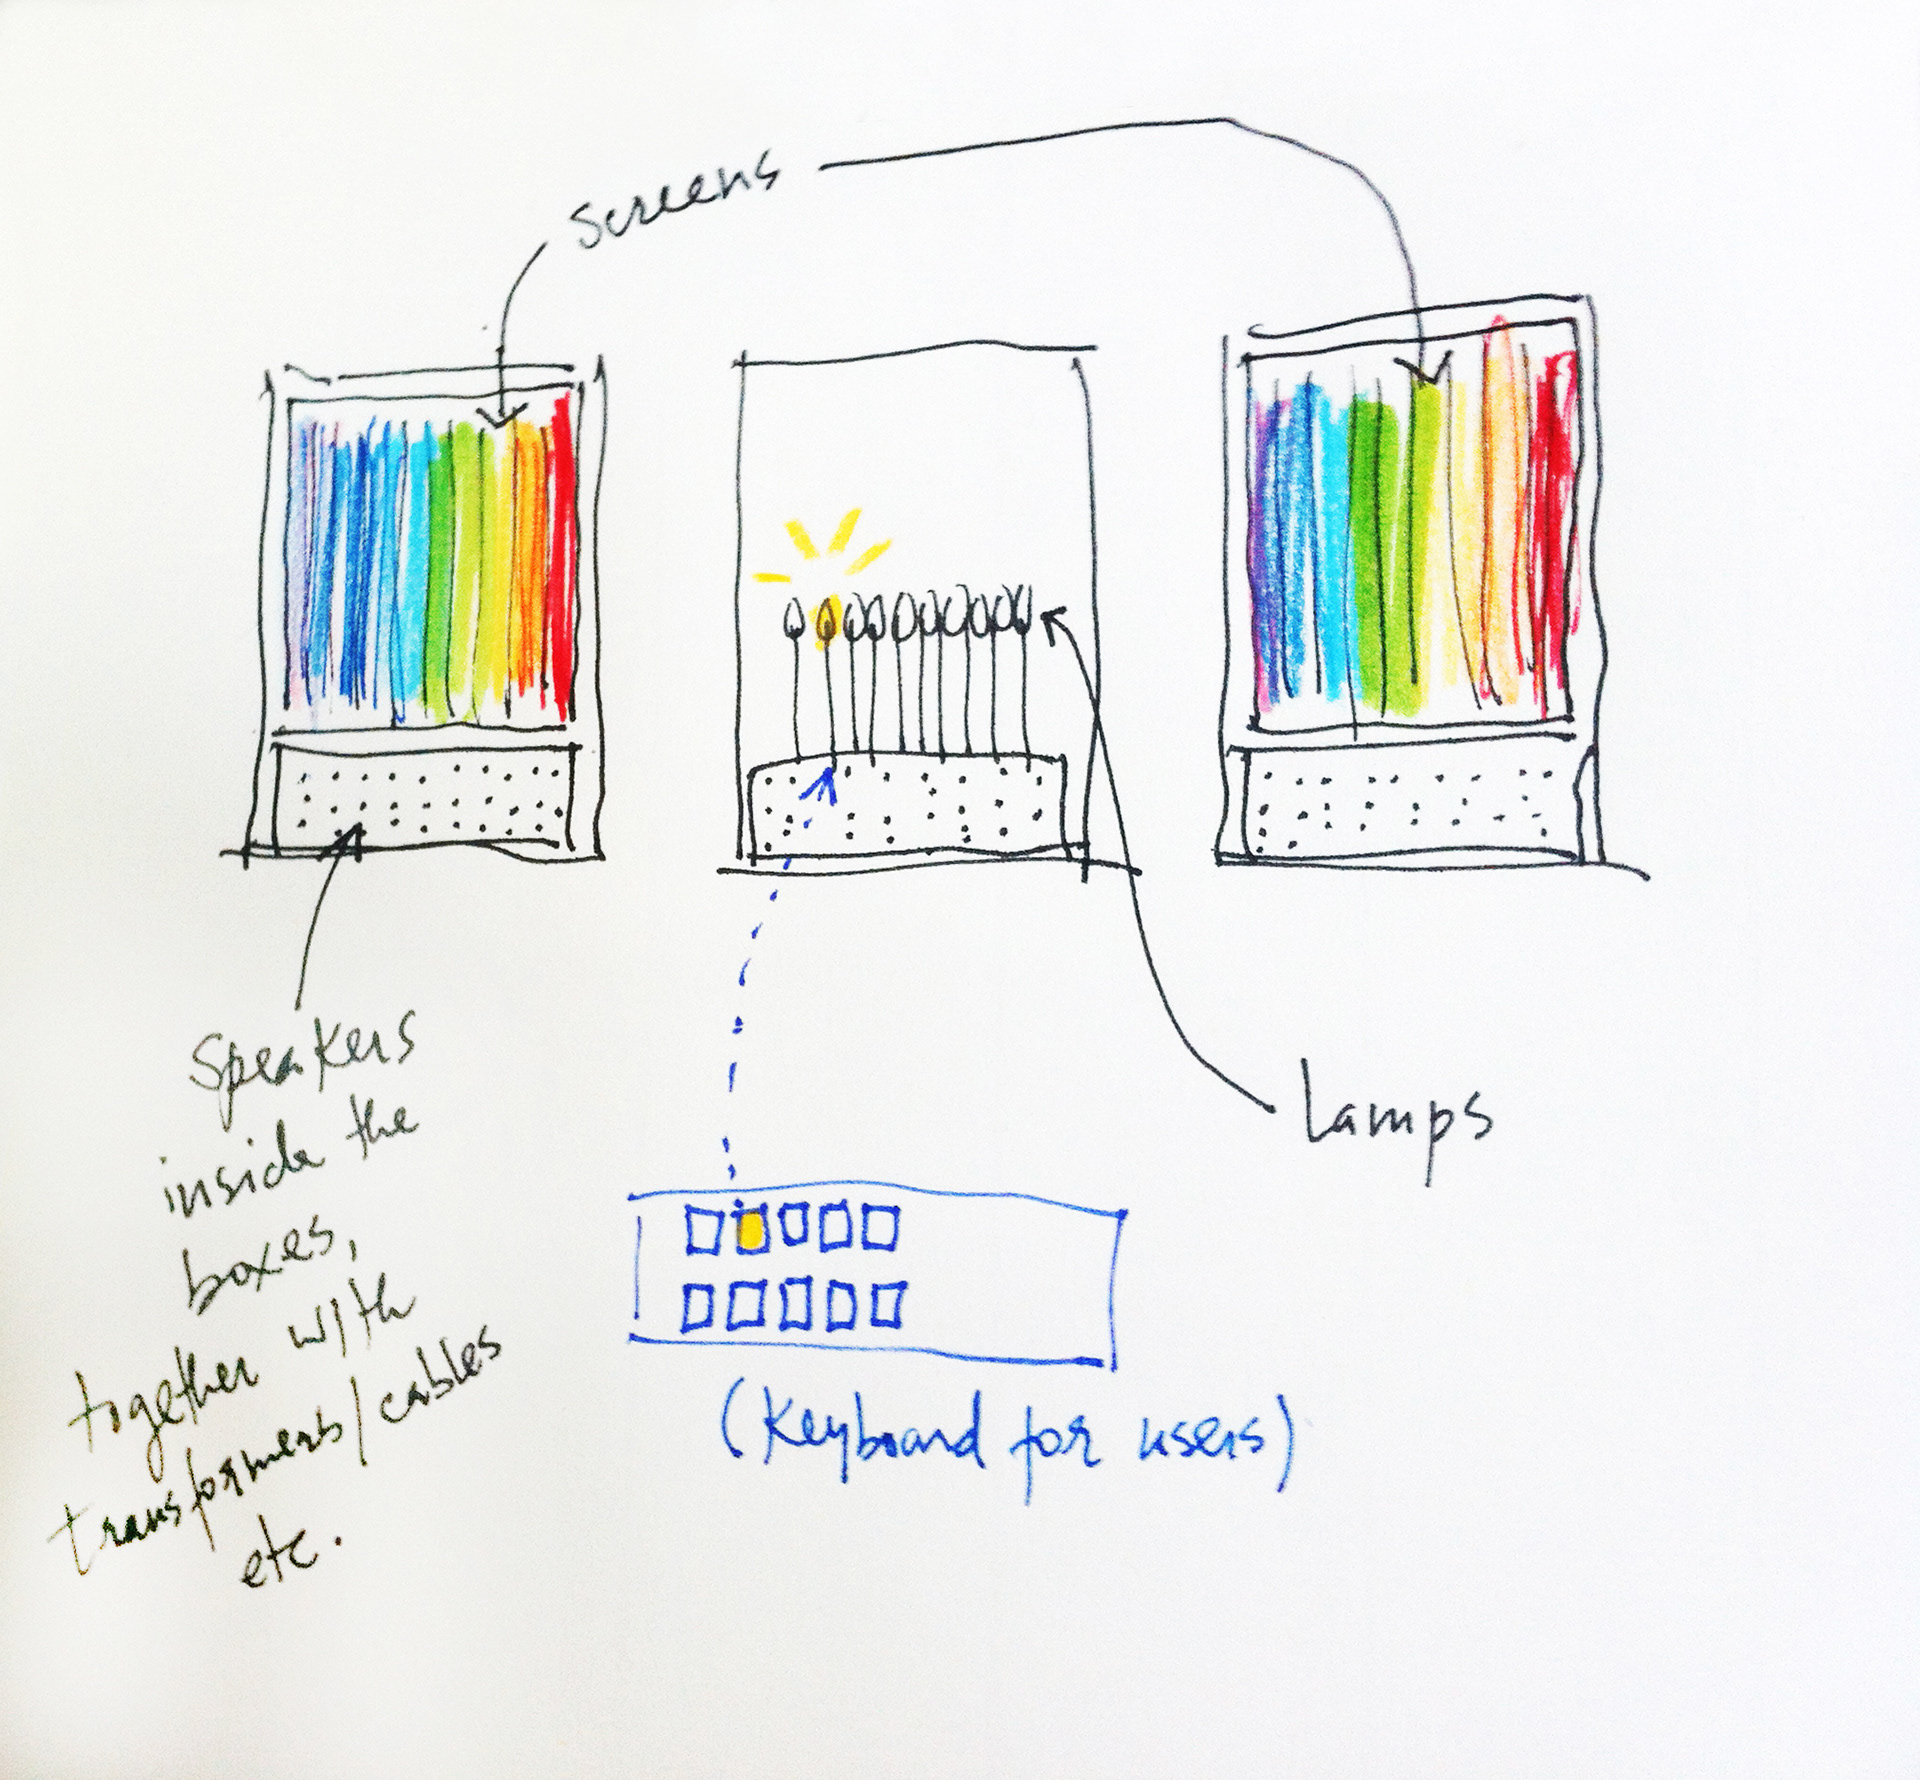 Screens
Speakers
inside the
boxes,
together with
transformers/cables
etc.
Lamps
(Keyboard for users)